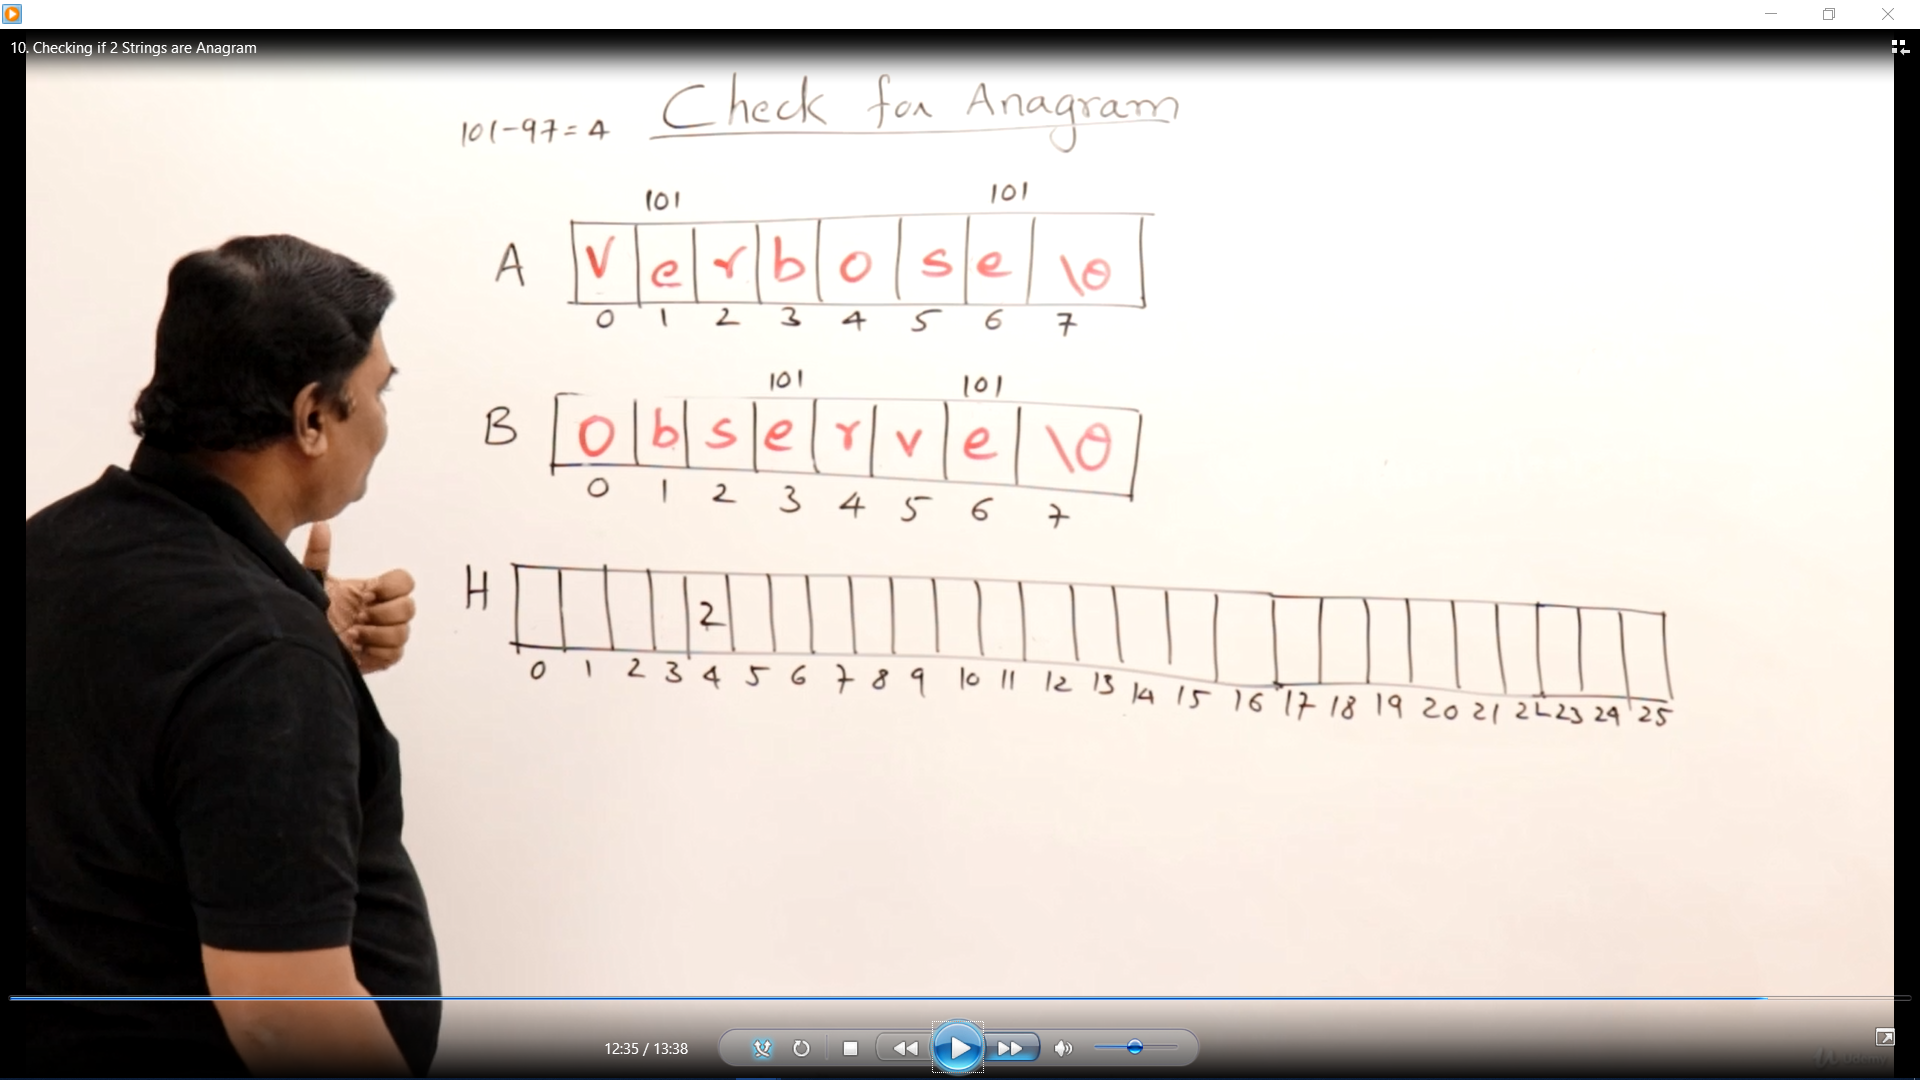 10. Checking if 2 Strings are Anagram
Check for Anagram
101-97=4
101 101
A v e r b o s e \0
0 1 2 3 4 5 6 7
101 101
B o b s e r v e \0
0 1 2 3 4 5 6 7
H 2
0 1 2 3 4 5 6 7 8 9 10 11 12 13 14 15 16 17 18 19 20 21 22 23 24 25
12:35 / 13:38
Udemy